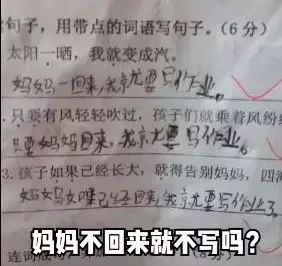 句子，用带点的词语写句子。(6分)
太阳一晒，我就变成汽。
妈妈一回来，我就要写作业。
.只要有风轻轻吹过，孩子们就乘着风纷
只要妈妈回来，我就要写作业。
3.孩子如果已经长大，就得告别妈妈，四海
妈妈如果已经回来，我就要写作业了。
妈妈不回来就不写吗?
连词成